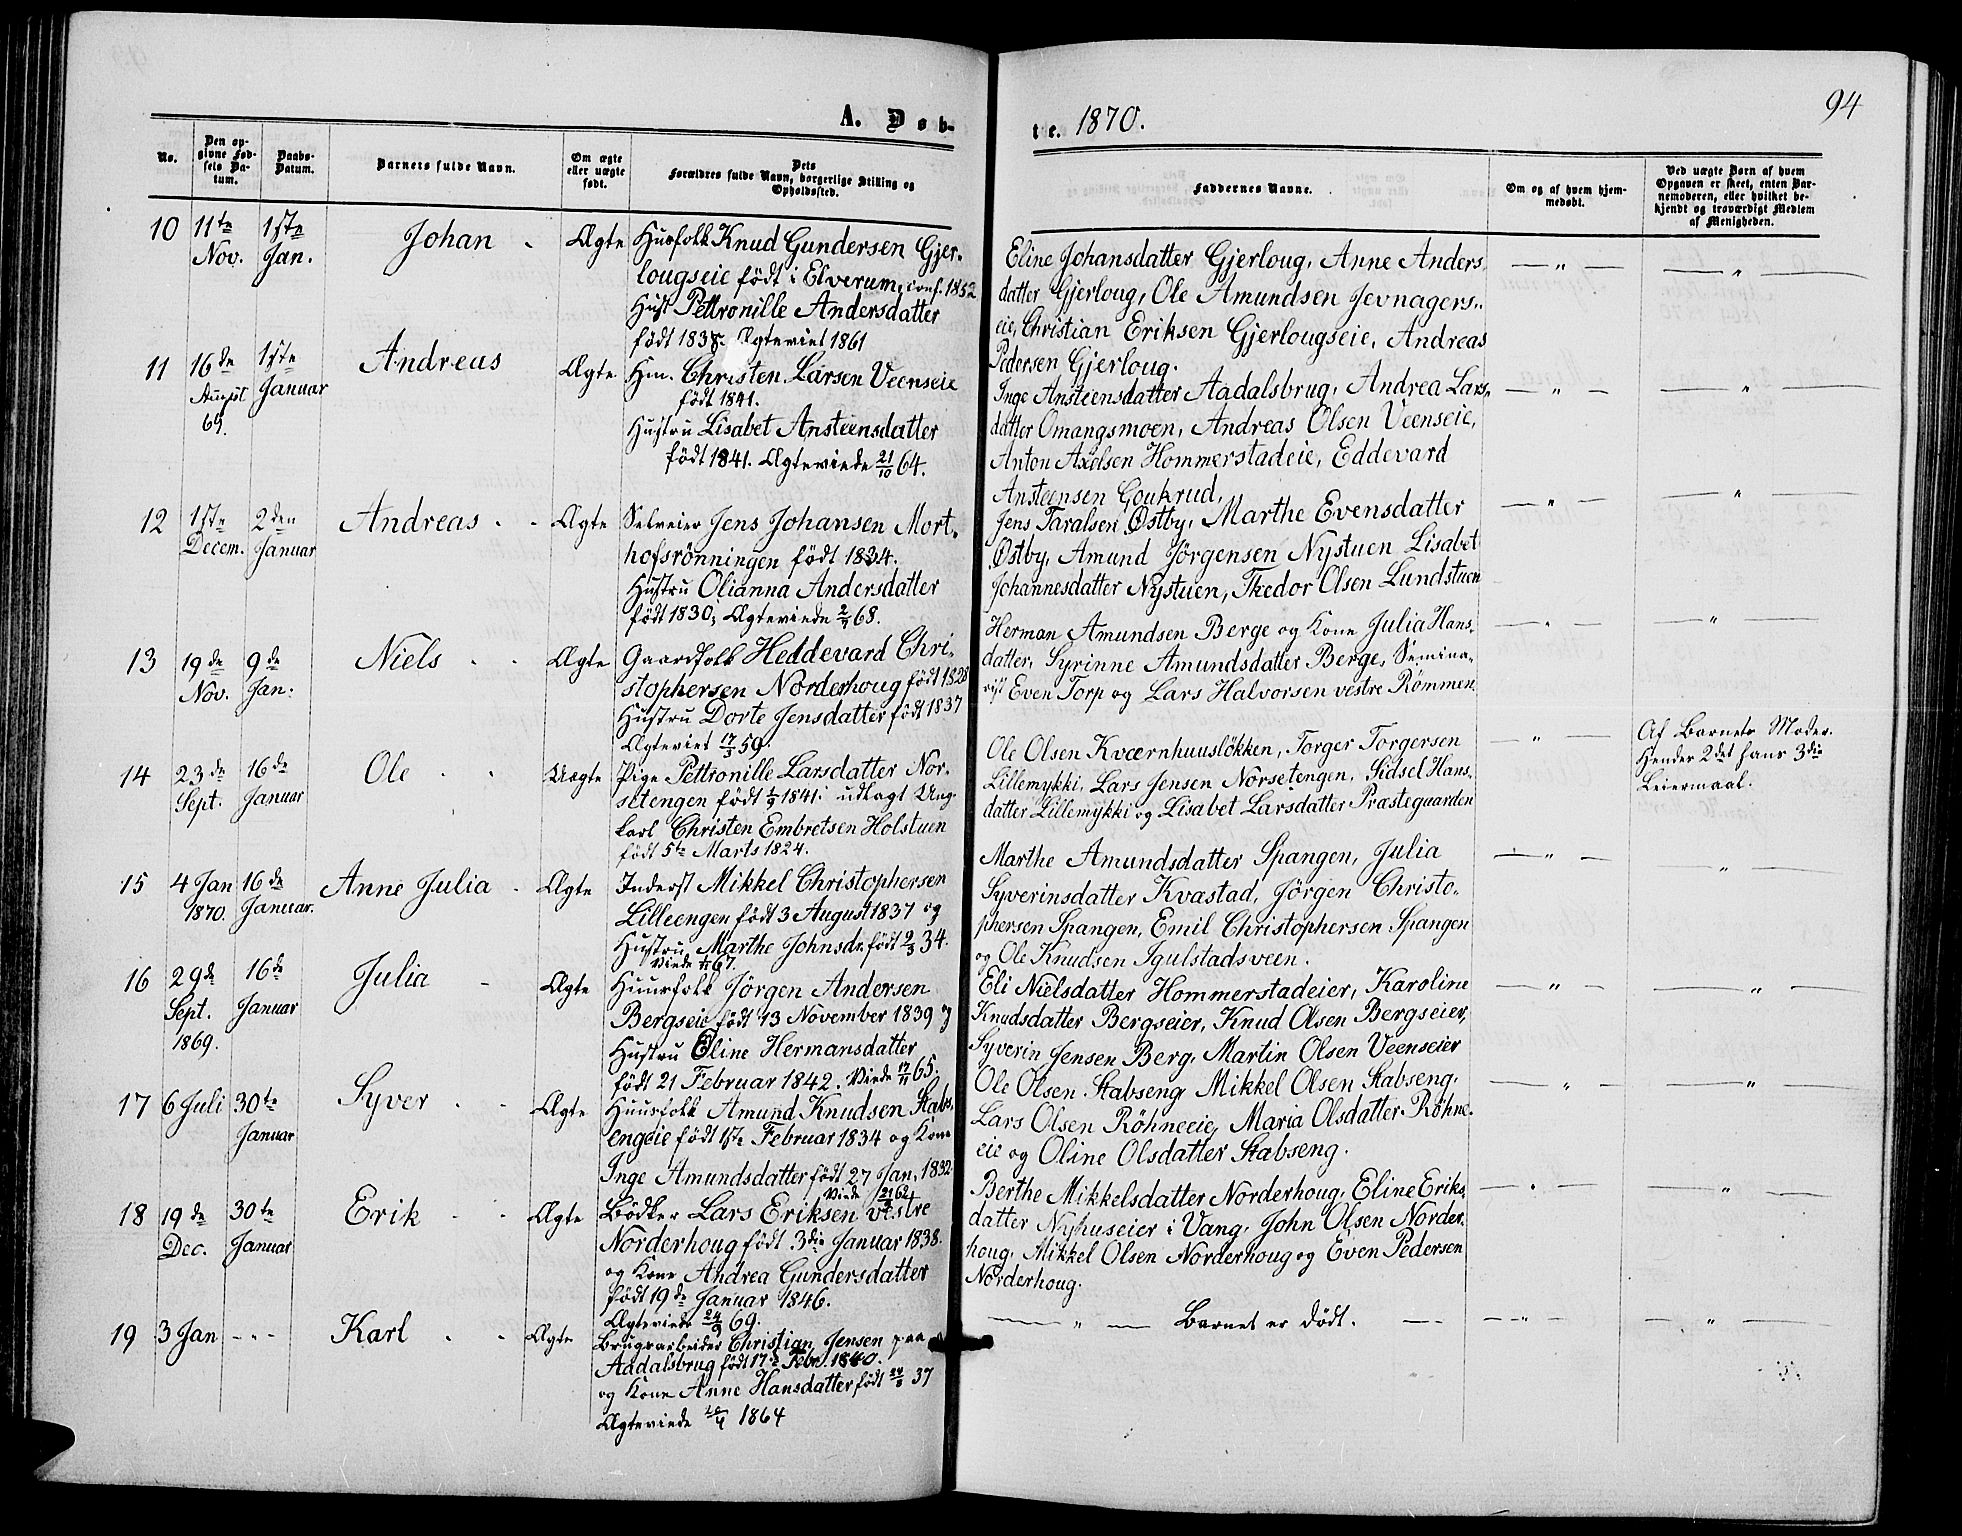 94
A. Døb-
te. 1870.
No.
Den op-
givne Fød-
sels Da-
tum.
Daabs-
Datum.
Barnets fulde Navn.
Om ægte
eller uægte
født.
Dets
Forældres fulde Navn, borgerlige Stilling og
Opholdssted.
Faddernes Navne.
Om og af hvem hjem-
medøbt.
Ved uægte Børn af hvem
Opgaven er skeet, enten Bar-
nemoderen, eller hvilket be-
kjendt og troværdigt Medlem
af Menigheden.
10 11te Nov. 1ste Jan. Johan Ægte
Husfolk Knud Gundersen Gjer-
lougseie födt i Elverum, conf. 1852
Hust Pettronille Andersdatter
födt 1838 Ægteviet 1861
Eline Johansdatter Gjerloug, Anne Anders
datter Gjerloug, Ole Amundsen Jevnagers-
eie, Christian Eriksen Gjerlougseie, Andreas
Pedersen Gjerloug.
11 16de August 69. 1ste Januar Andreas Ægte
Hm. Christen Larsen Veenseie
födt 1841.
Hustru Lisabet Ansteensdatter
födt 1841. Ægteviede 21/10 64.
Inge Ansteensdatter Aadalsbrug, Andrea Lars-
datter Omangsmoen, Andreas Olsen Veenseie,
Anton Axelsen Hommerstadeie, Eddevard
Ansteensen Goukrud.
12 1ste Decem. 2den Januar Andreas Ægte
Selveier Jens Johansen Mort-
hofsrønningen födt 1834.
Hustru Olianna Andersdatter
födt 1830; Ægteviede 68.
Jens Taralsen Østby, Marthe Evensdatter
Østby, Amund Jörgensen Nystuen Lisabet
Johannesdatter Nystuen, Thedor Olsen Lundstuen
13 19de Nov. 9de Jan. Niels Ægte
Gaardfolk Heddevard Chri-
stophersen Norderhoug födt 1828
Hustru Dorte Jensdatter födt 1837
Ægteviet 59.
Herman Amundsen Berge og Kone Julia Hans-
datter, Syrinne Amundsdatter Berge, Semina-
rist Even Torp og Lars Halvorsen vestre Römmen.
14 23de Sept. 16de Januar Ole Uægte
Pige Pettronille Larsdatter Nor-
setengen födt 1841: udlagt Ung-
karl Christen Embretsen Holstuen
födt 5te Marts 1824.
Ole Olsen Kværnhuuslökken, Torger Torgersen
Lillemykki, Lars Jensen Norsetengen, Sidsel Hans-
datter Lillemykki og Lisabet Larsdatter Præstegaarden
Af Barnets Moder.
Hendes 2det hans 3die
Leiermaal.
15 4 Jan 1870. 16de Januar. Anne Julia Ægte
Inderst Mikkel Christophersen
Lilleengen födt 3 August 1837 og
Hustru Marthe Johnsdr. födt 34.
Viede 67.
Marthe Amundsdatter Spangen, Julia
Syverinsdatter Kvastad, Jörgen Christo-
phersen Spangen, Emil Christophersen Spangen
og Ole Knudsen Igulstadsveen.
16 29de Sept. 1869. 16de Januar Julia Ægte
Huusfolk Jörgen Andersen
Bergseie födt 13 November 1839 og
Hustru Eline Hermansdatter
födt 21 Februar 1842. Viede 17/11 65.
Eli Nielsdatter Hommerstadeier, Karoline
Knudsdatter Bergseier, Knud Olsen Bergseier,
Syverin Jensen Berg, Martin Olsen Veenseier
17 6 Juli 30te Januar Syver Ægte
Huusfolk Amund Knudsen Stabs-
engeie födt 1ste Februar 1834 og Kone
Inge Amundsdatter födt 27 Jan. 1832
Viede 62
Ole Olsen Stabseng, Mikkel Olsen Stabseng,
Lars Olsen Röhneeie, Maria Olsdatter Röhne-
eie og Oline Olsdatter Stabseng.
18 19de Dec. 30te Januar Erik Ægte
Bödker Lars Eriksen vestre
Norderhoug födt 3die Januar 1838.
og Kone Andrea Gundersdatter
födt 19de Januar 1846.
Ægteviede 24/9 69.
Berthe Mikkelsdatter Norderhoug, Eline Eriks-
datter Nyhuseier i Vang, John Olsen Norder-
houg, Mikkel Olsen Norderhoug og Even Pedersen
Norderhoug.
19 3 Jan Karl Ægte
Brugsarbeider Christian Jensen paa
Aadalsbrug födt 17de Febr. 1840.
og Kone Anne Hansdatter födt 37
Ægteviede 1864
Barnet er dödt.